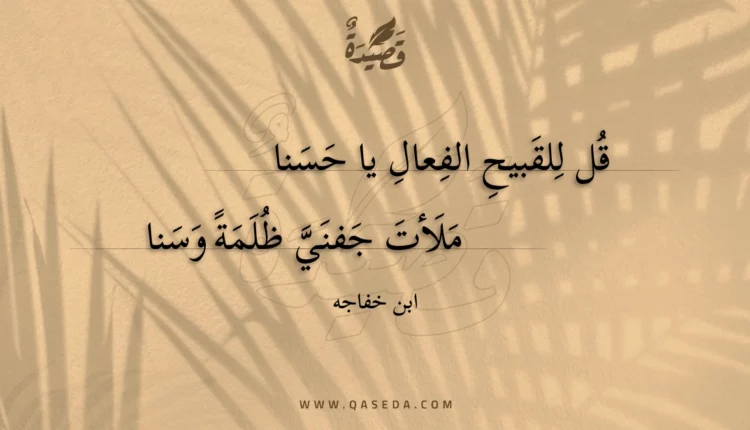 قَصِيْدَةٌ
قُل لِلقَبيحِ الفِعالِ يا حَسَنا
مَلَأتَ جَفنَيَّ ظُلمَةً وَسَنا
ابن خفاجه
WWW.QASEDA.COM